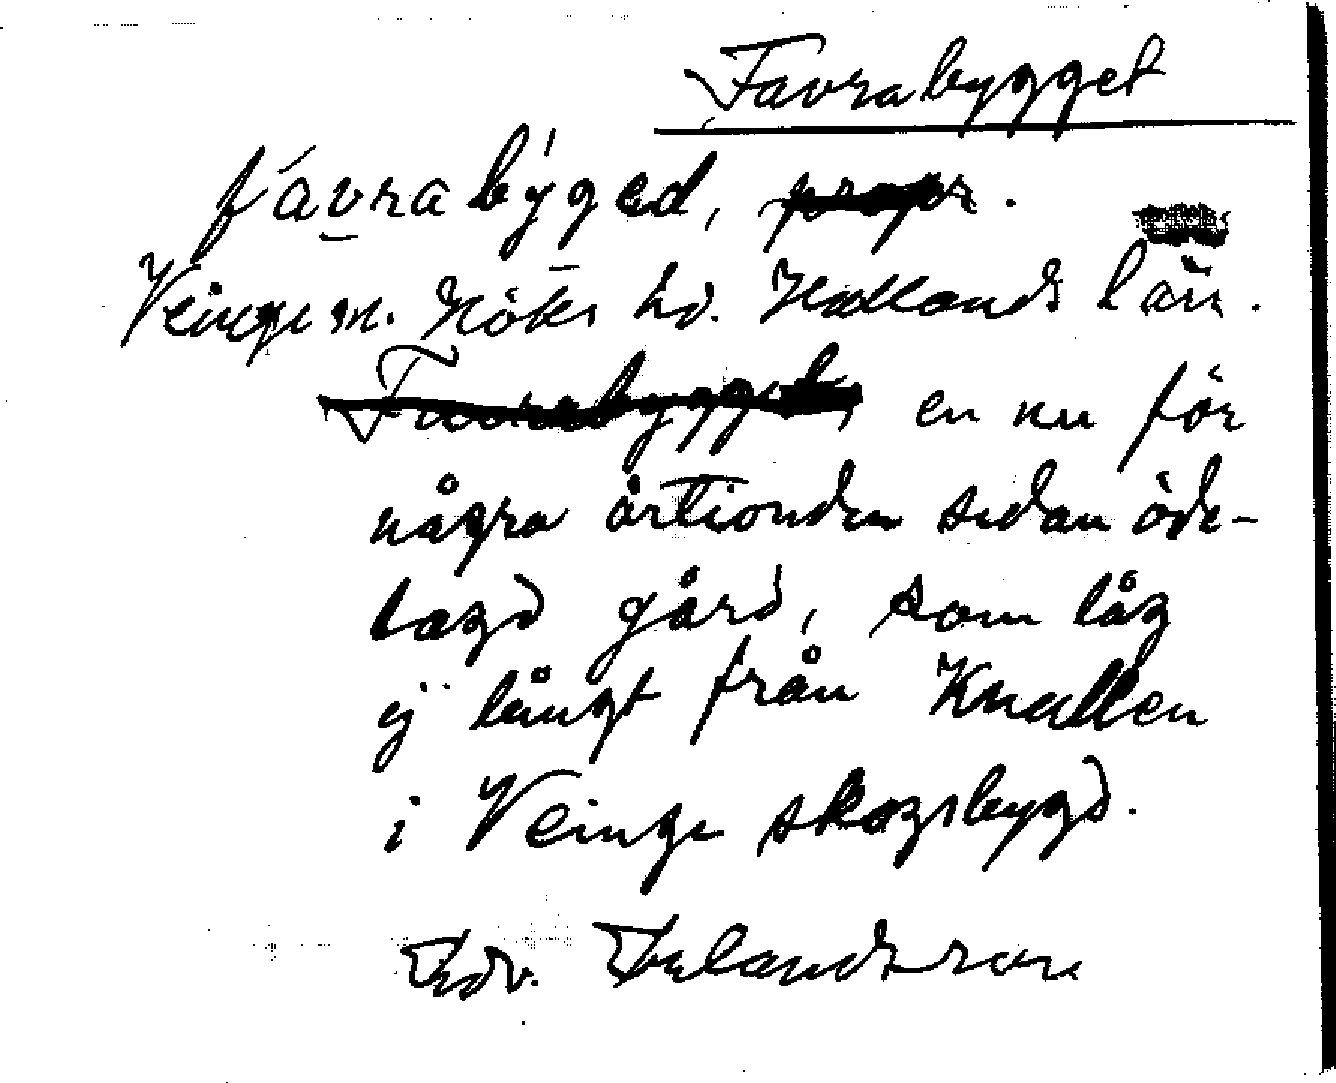 Favrabygget
favrabýged, propr.
Veinge sn. Höks hd. Hallands län.
Favrabygget, en nu för
några årtionden sedan öde-
lagd gård, som låg
ej långt från Knallen
i Veinge skogsbygd.
Edv.